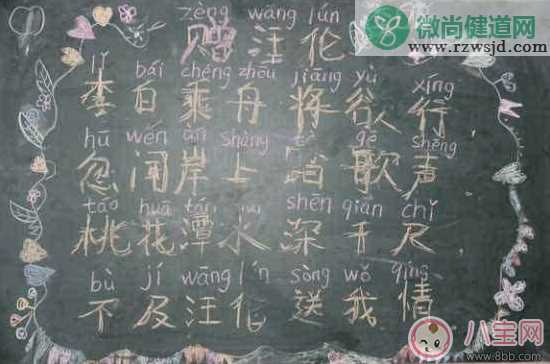 微尚健道网
www.rzwsjd.com
zèng wāng lún
赠汪伦
lǐ bái chéng zhōu jiāng yù xíng
李白乘舟将欲行
hū wén àn shàng tà gē shēng
忽闻岸上踏歌声
táo huā tán shēn qiān chǐ
桃花潭水深千尺
bù jí wāng lún sòng wǒ qíng
不及汪伦送我情
八宝网
www.8bb.com